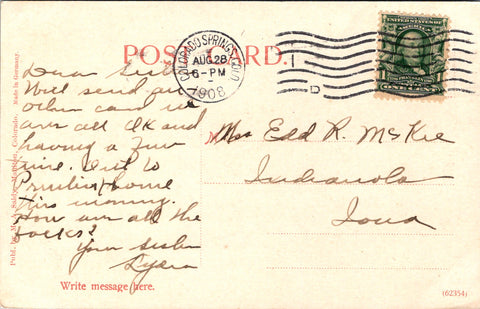 POST CARD.
COLORADO SPRINGS, COLO.
AUG 28
6-PM
1908
D
UNITED STATES OF AMERICA
ONE CENT
Dear Sister
Will send an
other card we
are all OK and
having a fine
time. Out to
home
this morning.
How are all the
folks?
Your sister
Lydia
Mrs Edd R. McKee
Indianola
Iowa
Write message here.
Made in Germany.
(62354)